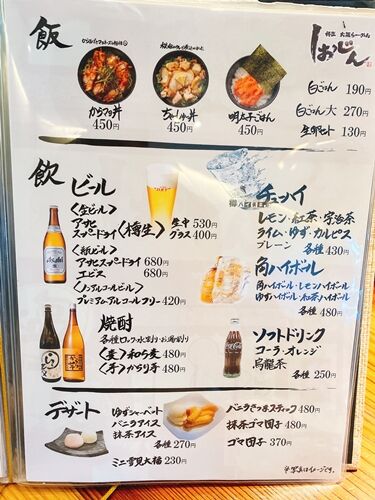 飯
からマヨ丼
450円
ちゃーしゅー丼
450円
明太子ごはん
450円
白ごはん 190円
白ごはん 大 270円
生卵セット 130円
飲
ビール
〈生ビール〉
アサヒ
スーパードライ
〈樽生〉
生中 530円
グラス 400円
〈瓶ビール〉
アサヒスーパードライ 680円
エビス 680円
〈ノンアルコールビール〉
プレミアムアルコールフリー 420円
焼酎
各種ロック・水割り・お湯割り
〈麦〉和ら麦 480円
〈芋〉からり芋 480円
チューハイ
レモン・紅茶・宇治茶
ライム・ゆず・カルピス
プレーン
各種 430円
角ハイボール
角ハイボール・レモンハイボール
ゆずハイボール・紅茶ハイボール
各種 480円
ソフトドリンク
コーラ・オレンジ
烏龍茶
各種 250円
デザート
ゆずシャーベット
バニラアイス
抹茶アイス
各種 270円
ミニ雪見大福 230円
バニラさつまスティック 480円
抹茶ゴマ団子 480円
ゴマ団子 370円
※写真はイメージです。